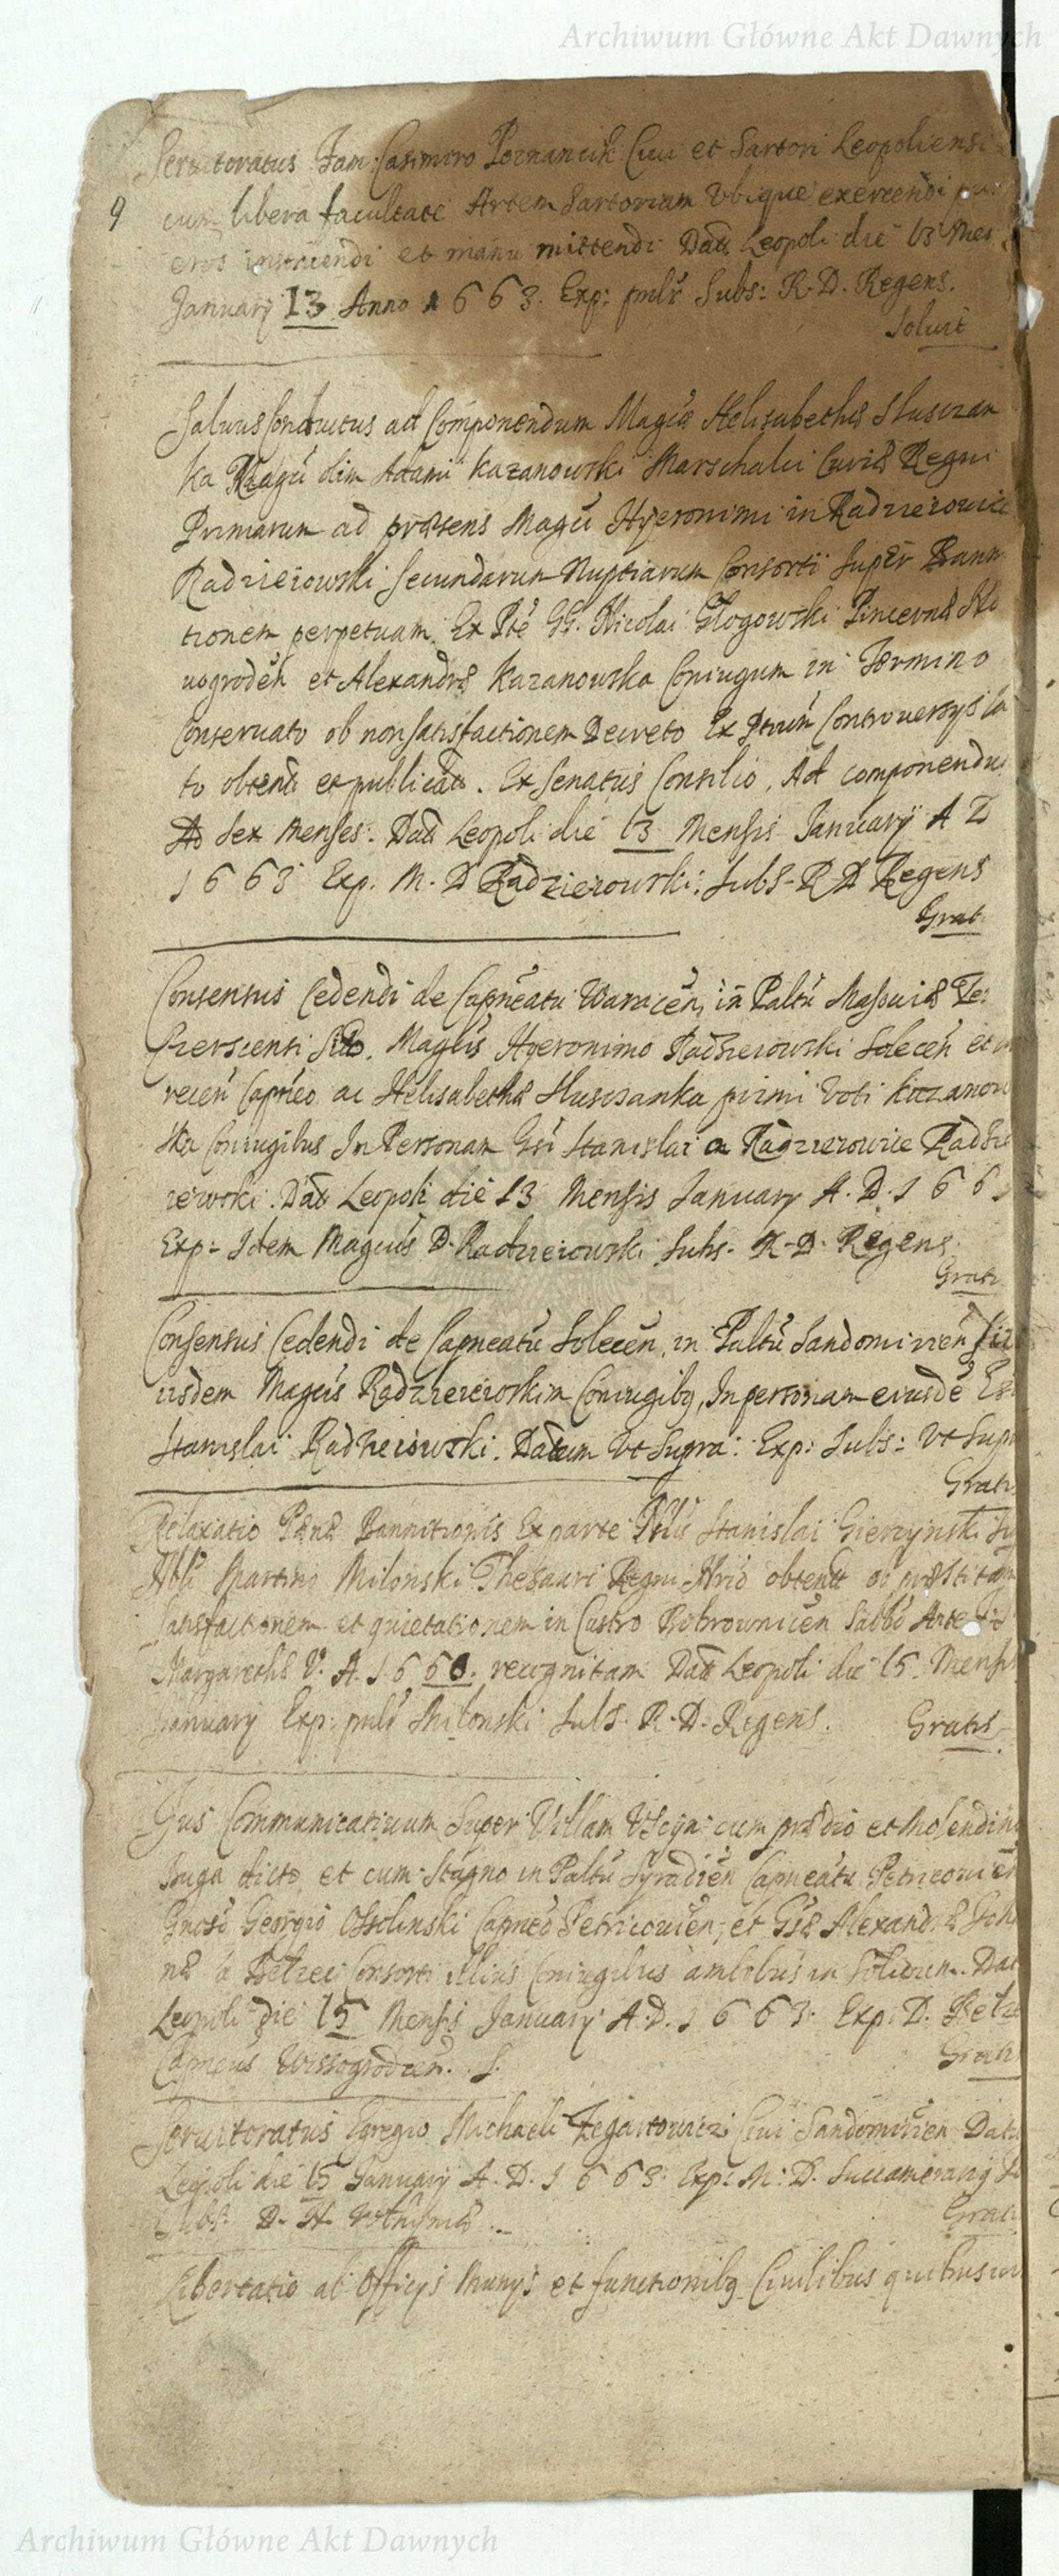 Archiwum Główne Akt Dawnych
Servitoratus Fam: Casimiro Poznancik Civi et Sartori Leopoliensi
9
cum libera facultate Artem Sartoriam Vbique exercendi pu
eros instruendi et manu mittendi Datt Leopoli die 13 Mes
January 13 Anno 1663. Exp: pmlr Subs: R. D. Regens.
Soluit
Saluus Conductus ad Componendum Magcae Helisabethae Slusczan
ka Magci olim Adami Kazanowski Marschalci Curiae Regni
Primarum ad praesens Magci Hyeronimi in Radzieiowice
Radzieiowski Secundarum Nuptiarum Consorti Super Bann
tionem perpetuam. Ex Pte GG. Nicolai Głogowski Pincernae No
uogroden et Alexandrae Kazanowska Coniugum in Termino
Conseruato ob non satisfactionem Decreto Ex Ptrum Controuersys la
to obtent et publicatt. Ex Senatus Consilio, Ad componendu
Ad sex Menses. Datt Leopoli die 13 Mensis January A D
1663 Exp. M. D Radzieiowski: Subs- R D Regens
Grat
Consensus Cedendi de Capneatu Warecen, in Paltu Masouiae Te:
Czerscensi Sito. Magcis Hyeronimo Radzieiowski Solecen et
recen Capneo ac Helisabetha Slusczanka primi Voti Kazanow
ska Coniugibus In Personam Gsi Stanislai a Radzieiowice Radzie
iewski. Datt Leopoli die 13 Mensis January A. D. 166
Exp: Idem Magcus D. Radzieiowski Subs- R-D. Regens.
Gratis
Consensus Cedendi de Capneatu Solecen, in Paltu Sandomirien Sit
iisdem Magcis Radzieieioskim Coniugibq, In personam eiusde
Stanislai Radzieiowski. Datum Vt Supra. Exp: Subs: Vt Supr
Gratis
Relaxatio Paenae Bannitionis Ex parte Nblis Stanislai Gierzynski
Nbli Martino Milonski Thesauri Regni Nrio obtent ob praestitam
satisfactionem et quietationem in Castro Bobrownicen Sabbo Ante
Margarethae V. A. 1660. recognitam Datt Leopoli die 15. Mensis
January Exp: pmls Milonski Subs. R. D. Regens.
Gratis
Jus Communicatiuum Super Villam Vscyn cum praedio et Molendino
Buga dicto et cum Stagno in Paltu Syradien Capneatu Petricouien
Gnoso Georgio Ossolinski Capneo Petricouien, et Gsae Alexandrae
nae a Betzec Consorti illius Coniugibus ambobus in Solidum. Datt
Leopoli die 15 Mensis January A. D. 1663. Exp: D. Betze
Capneus Wissogroden. S.
Gratis
Seruitoratus Egregio Michaeli Zegartowicz Ciui Sandomirien Datt
Leopoli die 15 January A. D. 1663. Exp: M: D. Succamerariq
Subs: D. H.
Gratis
Libertatio ab Officys Munys et functionibq Ciuilibus quibusui
Archiwum Główne Akt Dawnych